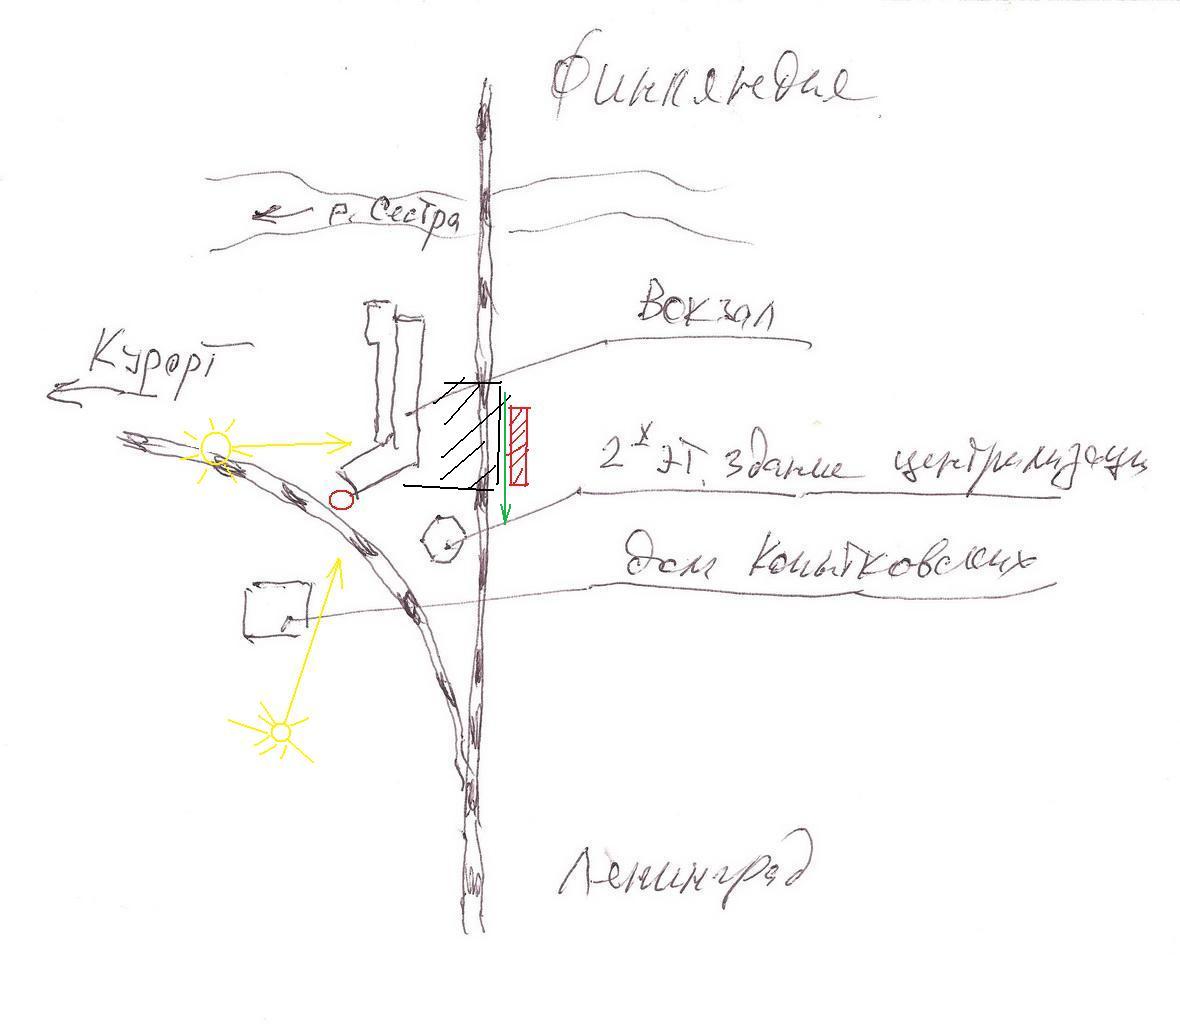 Финляндия
р. Сестра
Вокзал
Курорт
2х эт. здание централизации
Дом Копытковских
Ленинград